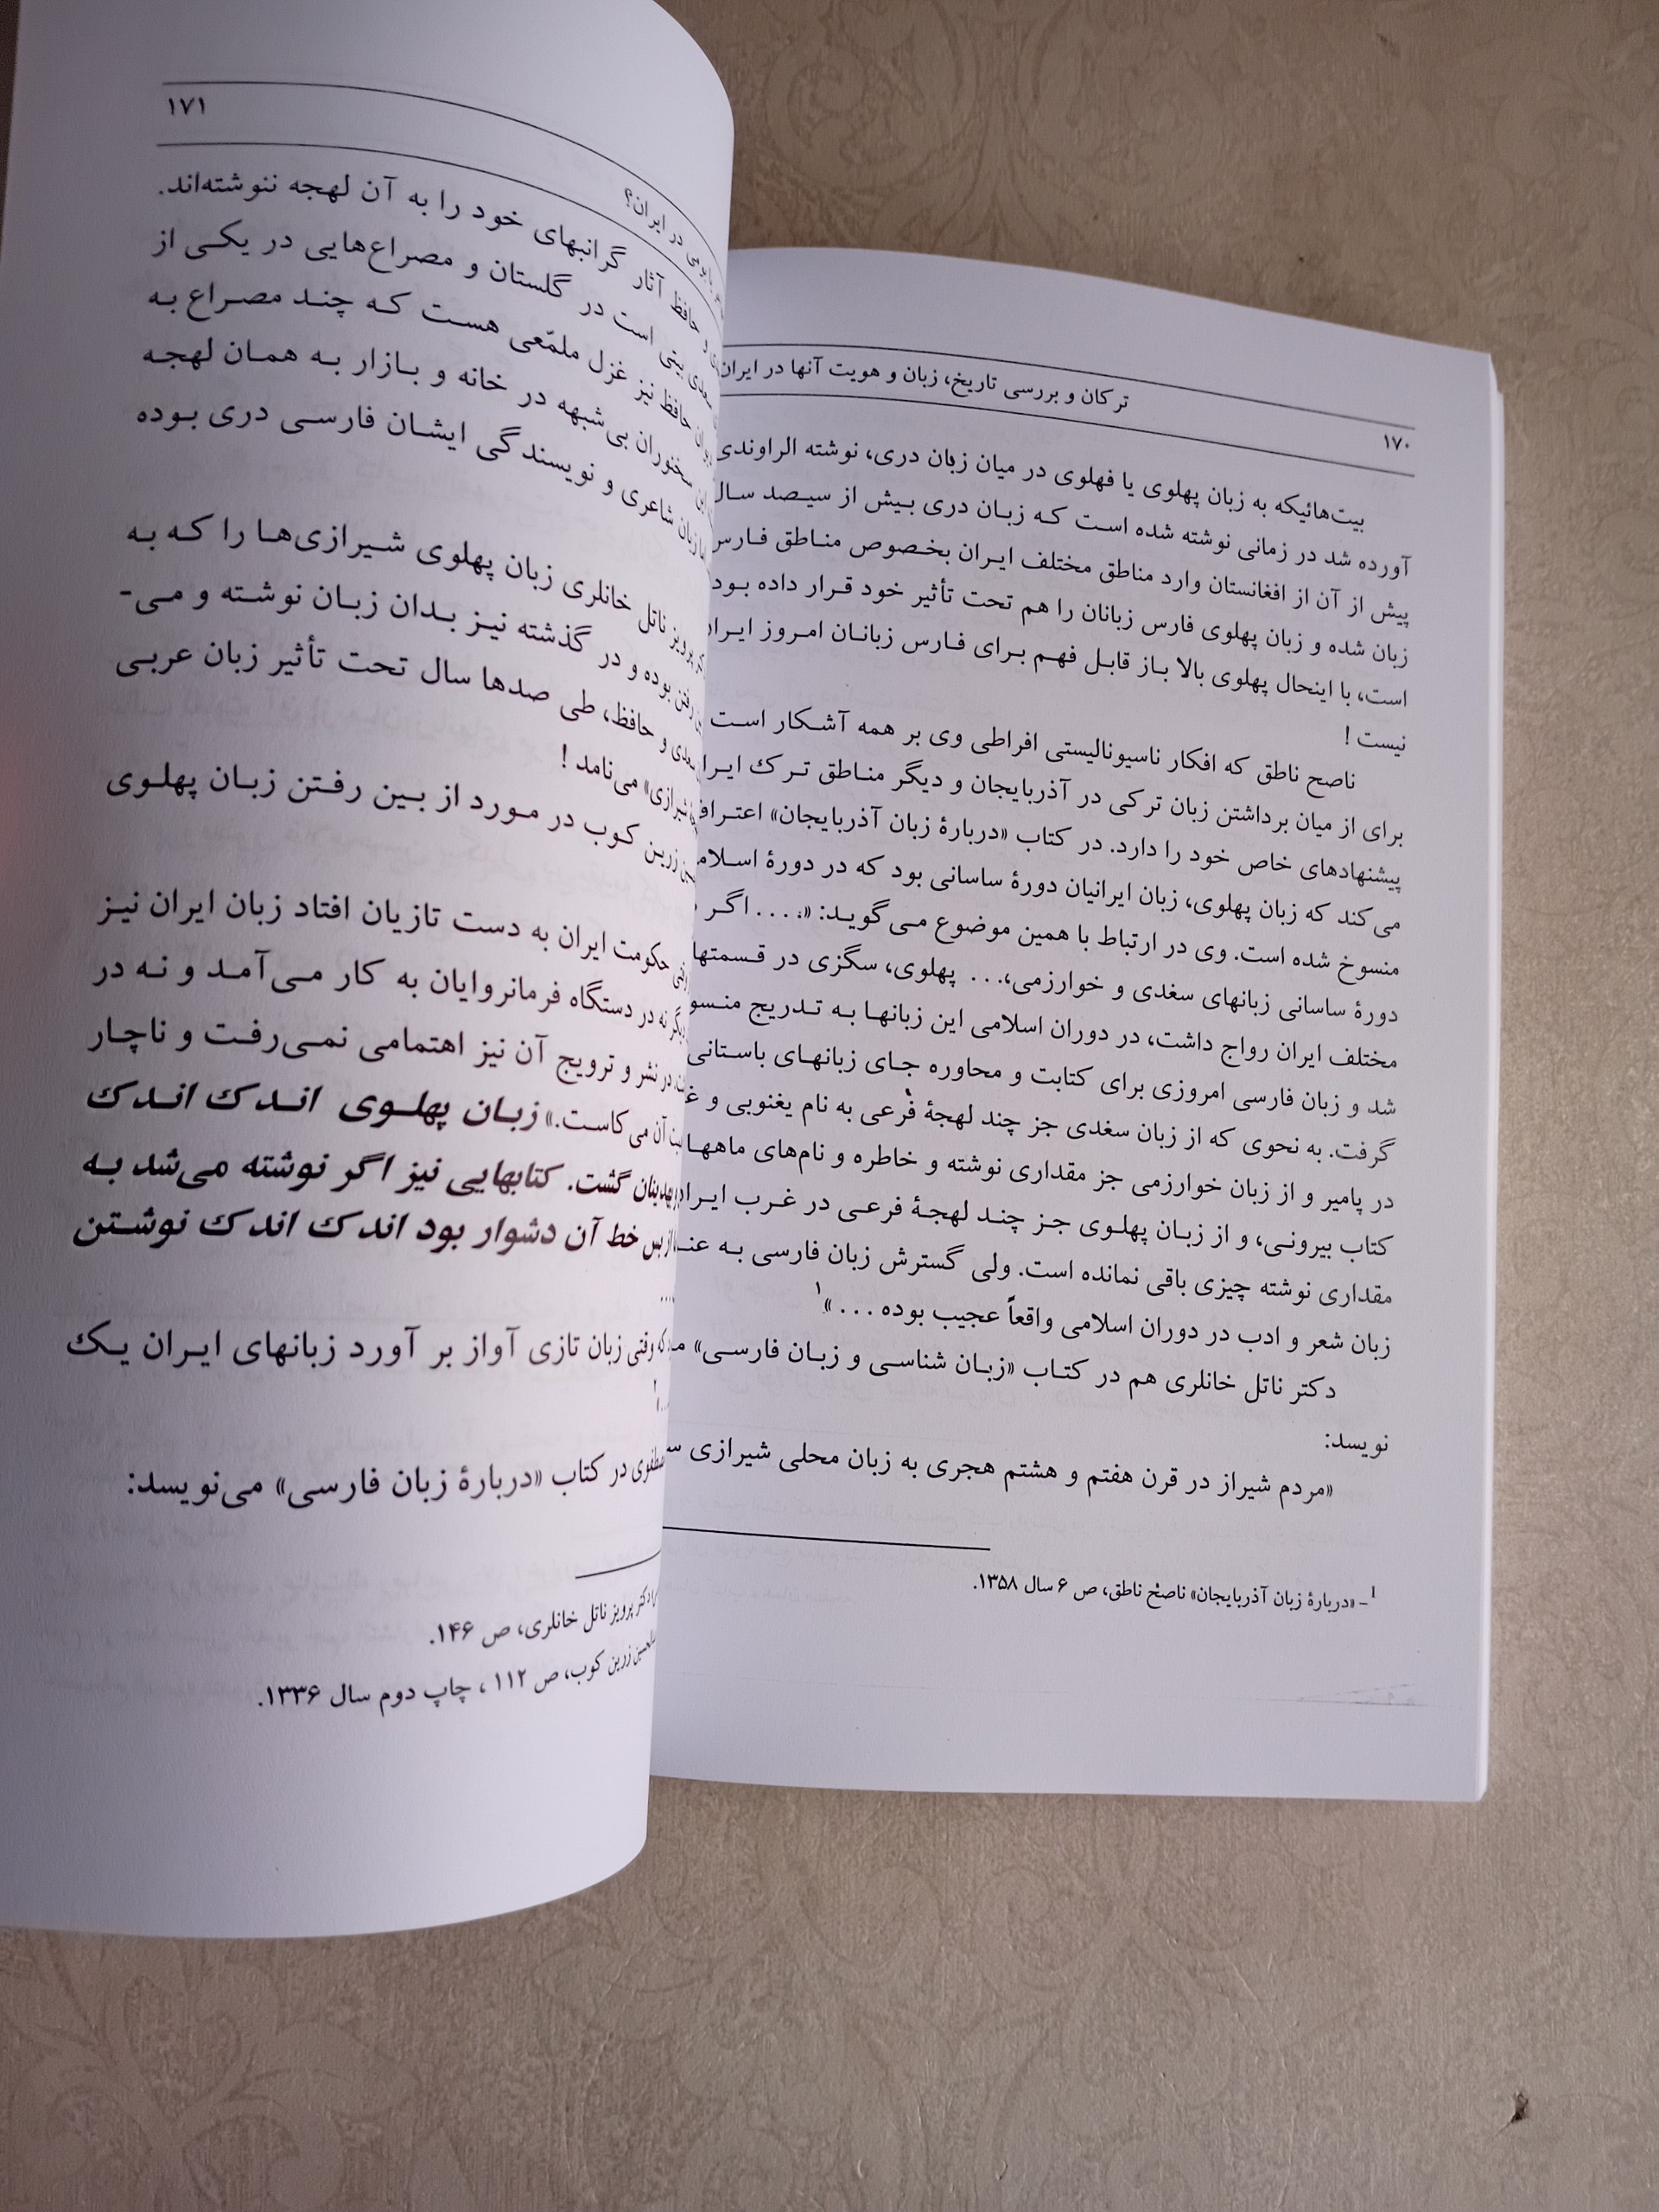 ۱۷۰
ترکان و بررسی تاریخ، زبان و هویت آنها در ایران
بیت‌هائیکه به زبان پهلوی یا فهلوی در میان زبان دری، نوشته الراوندی
آورده شد در زمانی نوشته شده است که زبان دری بیش از سیصد سال
پیش از آن از افغانستان وارد مناطق مختلف ایران بخصوص مناطق فارس
زبان شده و زبان پهلوی فارس زبانان را هم تحت تأثیر خود قرار داده بود
است، با اینحال پهلوی بالا باز قابل فهم برای فارس زبانان امروز
نیست !
ناصح ناطق که افکار ناسیونالیستی افراطی وی بر همه آشکار است
برای از میان برداشتن زبان ترکی در آذربایجان و دیگر مناطق ترک
پیشنهادهای خاص خود را دارد. در کتاب «دربارهٔ زبان آذربایجان»
می‌کند که زبان پهلوی، زبان ایرانیان دورهٔ ساسانی بود که در دورهٔ
منسوخ شده است. وی در ارتباط با همین موضوع می‌گوید: «.... اگر
دورهٔ ساسانی زبانهای سغدی و خوارزمی،... پهلوی، سگزی در
مختلف ایران رواج داشت، در دوران اسلامی این زبانها به تدریج
شد و زبان فارسی امروزی برای کتابت و محاوره جای زبانهای باستانی
گرفت. به نحوی که از زبان سغدی جز چند لهجهٔ فرعی به نام یغنوبی و
در پامیر و از زبان خوارزمی جز مقداری نوشته و خاطره و نام‌های
کتاب بیرونی، و از زبان پهلوی جز چند لهجهٔ فرعی در غرب
مقداری نوشته چیزی باقی نمانده است. ولی گسترش زبان فارسی به
زبان شعر و ادب در دوران اسلامی واقعاً عجیب بوده ... »۱
دکتر ناتل خانلری هم در کتاب «زبان شناسی و زبان فارسی»
نویسد:
«مردم شیراز در قرن هفتم و هشتم هجری به زبان محلی شیرازی
۱- «دربارهٔ زبان آذربایجان» ناصح ناطق، ص ۶ سال ۱۳۵۸.
۱۷۱
در ایران؟
و حافظ آثار گرانبهای خود را به آن لهجه ننوشته‌اند.
بیتی است در گلستان و مصراع‌هایی در یکی از
حافظ نیز غزل ملمّعی هست که چند مصراع به
سخنوران بی‌شبهه در خانه و بازار به همان لهجه
زبان شاعری و نویسندگی ایشان فارسی دری بوده
پرویز ناتل خانلری زبان پهلوی شیرازی‌ها را که به
رفتن بوده و در گذشته نیز بدان زبان نوشته و می-
و حافظ، طی صدها سال تحت تأثیر زبان عربی
شیرازی» می‌نامد !
زرین کوب در مورد از بین رفتن زبان پهلوی
حکومت ایران به دست تازیان افتاد زبان ایران نیز
نه در دستگاه فرمانروایان به کار می‌آمد و نه در
در نشر و ترویج آن نیز اهتمامی نمی‌رفت و ناچار
آن می‌کاست.» زبان پهلوی اندک اندک
گشت. کتابهایی نیز اگر نوشته می‌شد به
از بس خط آن دشوار بود اندک اندک نوشتن
....
که وقتی زبان تازی آواز بر آورد زبانهای ایران یک
در کتاب «دربارهٔ زبان فارسی» می‌نویسد:
دکتر پرویز ناتل خانلری، ص ۱۴۶.
زرین کوب، ص ۱۱۲ ، چاپ دوم سال ۱۳۳۶.